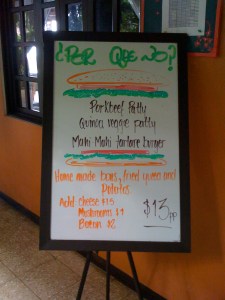 ¿POR QUE NO?
Porkbeef Patty
Quinoa veggie patty
Mahi Mahi tartare burger
Home made buns, fried yucca and
Potatoes
Add cheese $1.5
Mushrooms $1
Bacon $2
$13 pp